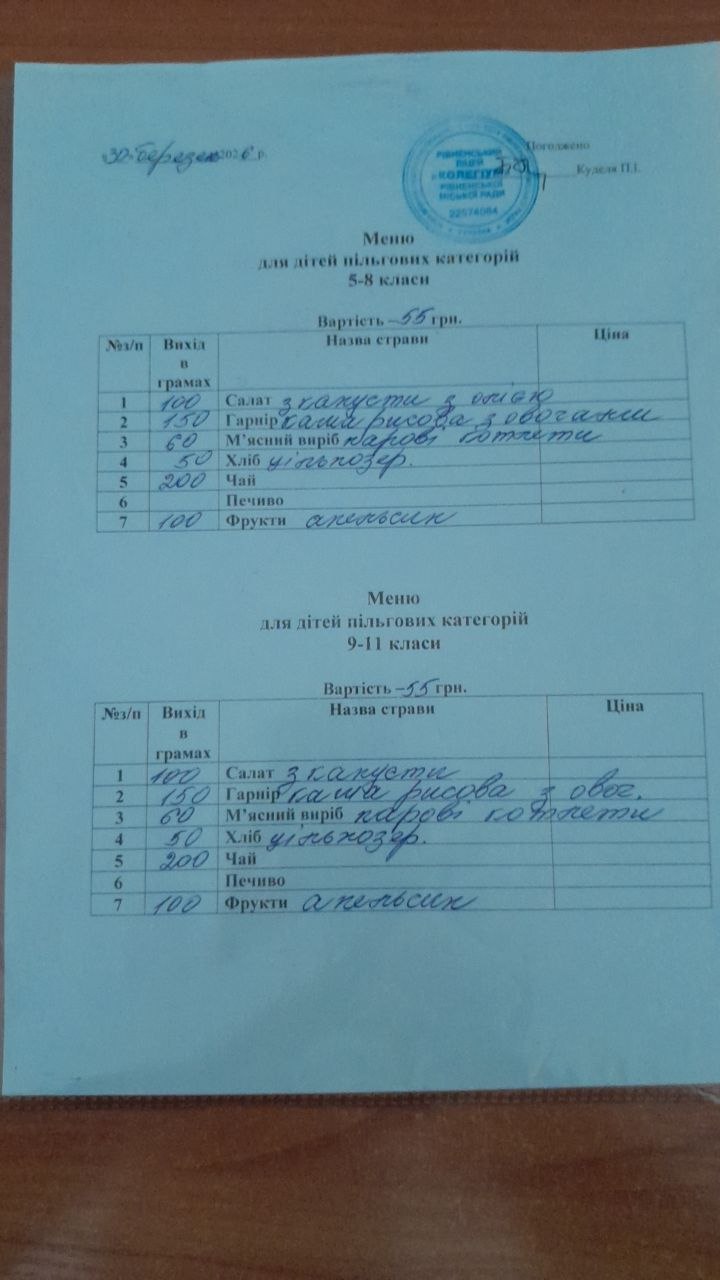 «30» березня 2026 р.
Погоджено
Куделя П.І.
РІВНЕНСЬКИЙ
ЛІЦЕЙ
«КОЛЕГІУМ»
РІВНЕНСЬКОЇ
МІСЬКОЇ РАДИ
22574084
Меню
для дітей пільгових категорій
5-8 класи
Вартість – 55 грн.
№з/п Вихід в грамах Назва страви Ціна
1 100 Салат з капусти з олією
2 150 Гарнір каша рисова з овочами
3 60 М’ясний виріб парові котлети
4 50 Хліб цільнозер.
5 200 Чай
6 Печиво
7 100 Фрукти апельсин
Меню
для дітей пільгових категорій
9-11 класи
Вартість – 55 грн.
№з/п Вихід в грамах Назва страви Ціна
1 100 Салат з капусти
2 150 Гарнір каша рисова з овоч.
3 60 М’ясний виріб парові котлети
4 50 Хліб цільнозер.
5 200 Чай
6 Печиво
7 100 Фрукти апельсин